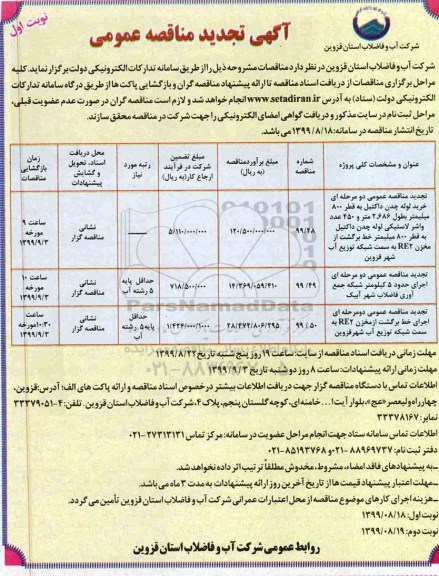 نوبت اول
آگهی تجدید مناقصه عمومی
شرکت آب و فاضلاب استان قزوین
شرکت آب و فاضلاب استان قزوین در نظر دارد مناقصات مشروحه ذیل را از طریق سامانه تدارکات الکترونیکی دولت برگزار نماید. کلیه
مراحل برگزاری مناقصات از دریافت اسناد مناقصه تا ارائه پیشنهاد مناقصه گران و بازگشایی پاکت ها از طریق درگاه سامانه تدارکات
الکترونیکی دولت (ستاد) به آدرس www.setadiran.ir انجام خواهد شد و لازم است مناقصه گران در صورت عدم عضویت قبلی،
مراحل ثبت نام در سایت مذکور و دریافت گواهی امضای الکترونیکی را جهت شرکت در مناقصه محقق سازند.
تاریخ انتشار مناقصه در سامانه: ۱۳۹۹/۸/۱۸ می باشد.
عنوان و مشخصات کلی پروژه | شماره مناقصه | مبلغ برآورد مناقصه (به ریال) | مبلغ تضمین شرکت در فرآیند ارجاع کار (به ریال) | رتبه مورد نیاز | محل دریافت اسناد، تحویل و گشایش پیشنهادات | زمان بازگشایی مناقصات
تجدید مناقصه عمومی دو مرحله ای خرید لوله چدن داکتیل به قطر ۸۰۰ میلیمتر بطول ۲،۶۸۶ متر و ۴۵۰ عدد واشر لاستیکی لوله چدن داکتیل به قطر ۸۰۰ میلیمتر خط برگشت از مخزن RE۲ به سمت شبکه توزیع آب شهر قزوین | ۹۹/۴۸ | ۱۲۰/۵۰۰/۰۰۰/۰۰۰ | ۵/۱۱۰/۰۰۰/۰۰۰ | ــــ | نشانی مناقصه گزار | ساعت ۹ مورخه ۱۳۹۹/۹/۳
تجدید مناقصه عمومی دو مرحله ای اجرای حدود ۵ کیلومتر شبکه جمع آوری فاضلاب شهر آبیک | ۹۹/۴۹ | ۱۴/۳۶۹/۰۵۹/۴۱۰ | ۷۱۸/۵۰۰/۰۰۰ | حداقل پایه ۵ رشته آب | نشانی مناقصه گزار | ساعت ۱۰ مورخه ۱۳۹۹/۹/۳
تجدید مناقصه عمومی دومرحله ای اجرای خط برگشت ازمخزن RE۲ به سمت شبکه توزیع آب شهرقزوین | ۹۹/۵۰ | ۲۸/۴۷۲/۸۰۶/۲۹۵ | ۱/۴۲۴/۰۰۰/۰۰۰ | حداقل پایه۵ رشته آب | نشانی مناقصه گزار | ساعت ۱۰:۳۰مورخه ۱۳۹۹/۹/۳
ParsNamadData
مهلت زمانی دریافت اسناد مناقصه از سایت: ساعت ۱۹ روز پنج شنبه تاریخ ۱۳۹۹/۸/۲۲
مهلت زمانی ارائه پیشنهادات: ساعت ۸ روز دو شنبه تاریخ ۱۳۹۹/۹/۳
اطلاعات تماس با دستگاه مناقصه گزار جهت دریافت اطلاعات بیشتر در خصوص اسناد مناقصه و ارائه پاکت های الف: آدرس: قزوین،
چهارراه ولیعصر «عج»، بلوار آیت ا... خامنه ای، کوچه گلستان پنجم، پلاک ۴، شرکت آب و فاضلاب استان قزوین. تلفن: ۴-۳۳۳۷۹۰۵۱
نمابر: ۳۳۳۷۸۱۶۷
اطلاعات تماس سامانه ستاد جهت انجام مراحل عضویت در سامانه: مرکز تماس ۲۷۳۱۳۱۳۱-۰۲۱
دفتر ثبت نام: ۸۸۹۶۹۷۳۷-۰۲۱ و ۸۵۱۹۳۷۶۸-۰۲۱
ـ به پیشنهادهای فاقد امضاء، مشروط، مخدوش مطلقاً ترتیب اثر داده نخواهد شد.
ـ مهلت اعتبار پیشنهاد قیمت ها از تاریخ آخرین روز ارائه پیشنهادات به مدت ۳ ماه می باشد.
ـ هزینه اجرای کارهای موضوع مناقصه از محل اعتبارات عمرانی شرکت آب و فاضلاب استان قزوین تأمین می گردد.
نوبت اول: ۱۳۹۹/۰۸/۱۸
نوبت دوم: ۱۳۹۹/۰۸/۱۹
روابط عمومی شرکت آب و فاضلاب استان قزوین